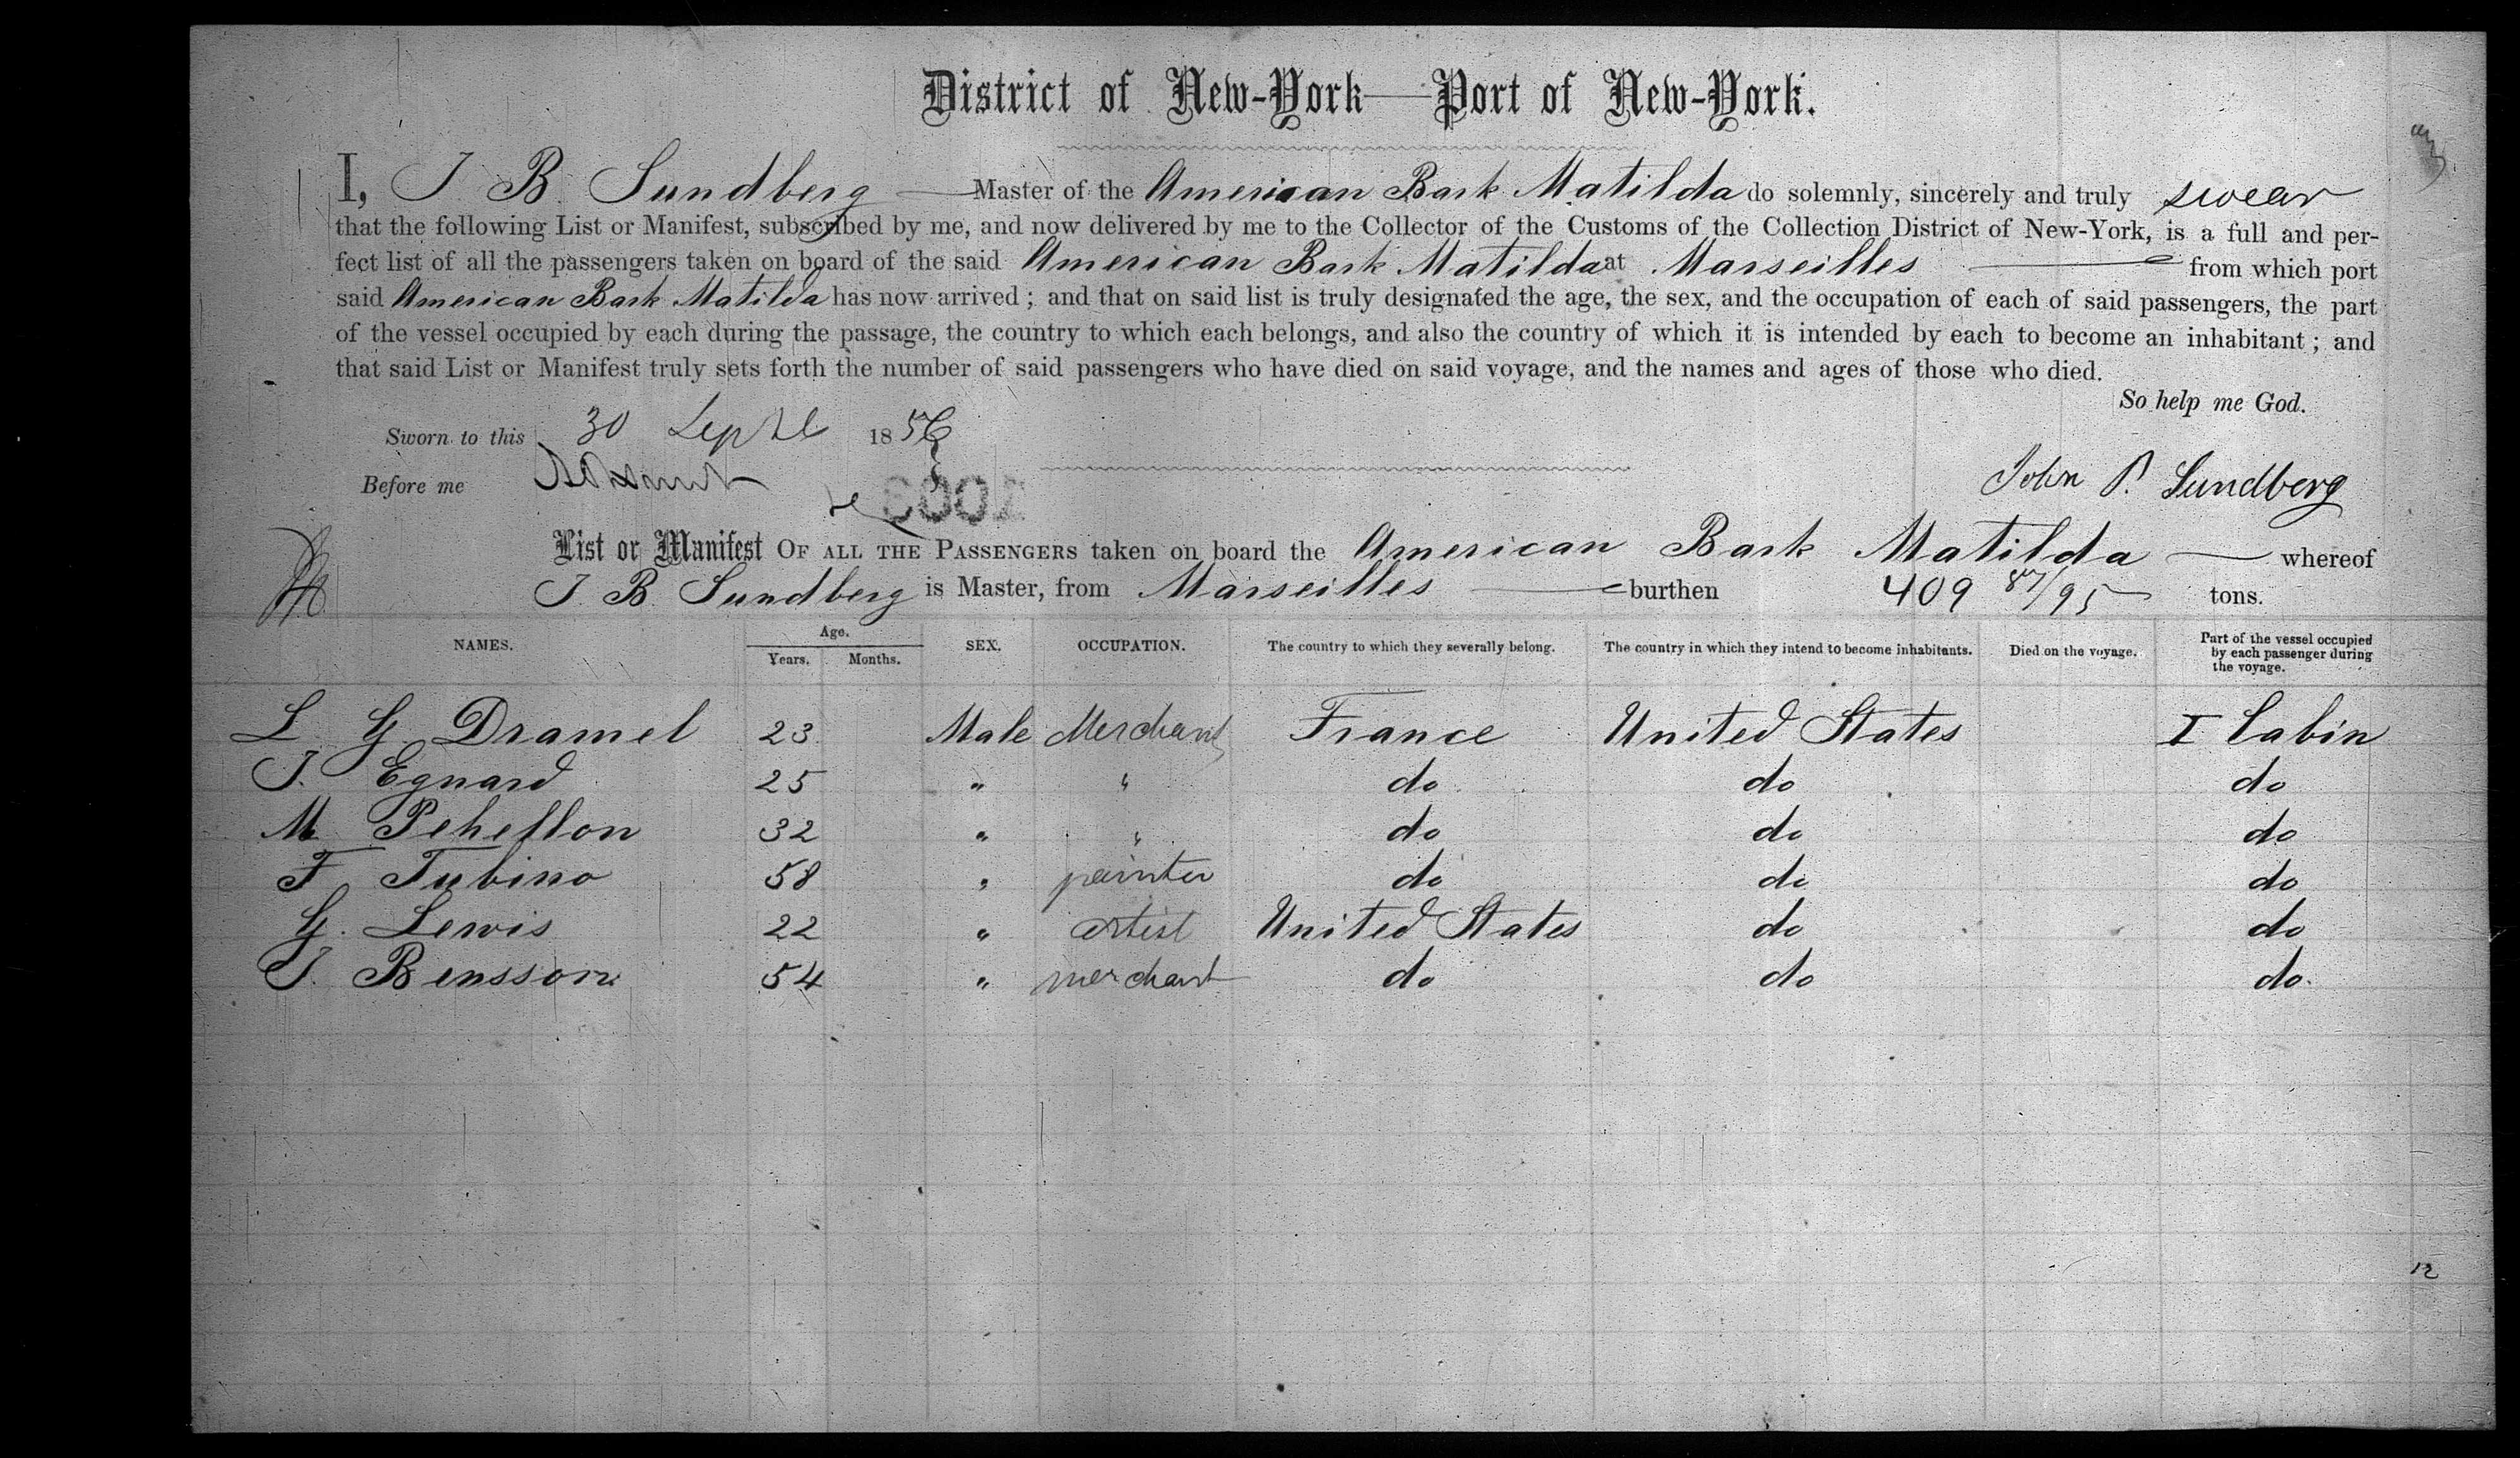 District of New-York—Port of New-York.
I, J B Sundberg — Master of the American Bark Matilda do solemnly, sincerely and truly swear
that the following List or Manifest, subscribed by me, and now delivered by me to the Collector of the Customs of the Collection District of New-York, is a full and per-
fect list of all the passengers taken on board of the said American Bark Matilda at Marseilles — from which port
said American Bark Matilda has now arrived; and that on said list is truly designated the age, the sex, and the occupation of each of said passengers, the part
of the vessel occupied by each during the passage, the country to which each belongs, and also the country of which it is intended by each to become an inhabitant; and
that said List or Manifest truly sets forth the number of said passengers who have died on said voyage, and the names and ages of those who died.
So help me God.
Sworn to this 30 Sept 1856
Before me
John P. Sundberg
List or Manifest OF ALL THE PASSENGERS taken on board the American Bark Matilda — whereof
J B Sundberg is Master, from Marseilles — burthen 409 87/95 tons.
NAMES. Age. Years. Months. SEX. OCCUPATION. The country to which they severally belong. The country in which they intend to become inhabitants. Died on the voyage. Part of the vessel occupied by each passenger during the voyage.
L G Dramel 23 Male Merchant France United States I Cabin
J. Egnard 25 " " do do do
M 32 " " do do do
F Tubino 58 " painter do do do
G. Lewis 22 " artist United States do do
J. Bensson 54 " merchant do do do.
12